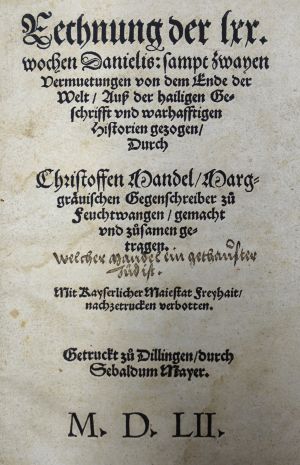 Rechnung der lxx.
wochen Danielis: sampt zwayen
Vermuetungen von dem Ende der
Welt / Auß der hailigen Ge-
schrifft vnd warhafftigen
Historien gezogen /
Durch
Christoffen Mandel / Marg-
gräuischen Gegenschreiber zů
Feuchtwangen / gemacht
vnd zůsamen ge-
tragen.
welcher Mandel ein gethauffter
Jud ist.
Mit Kayserlicher Maiestat Freyhait /
nachzetrucken verbotten.
Getruckt zů Dillingen / durch
Sebaldum Mayer.
M. D. LII.